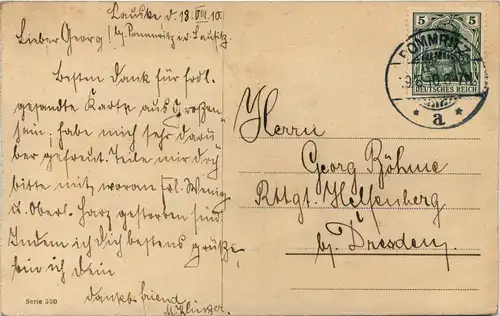 Lauske d. 18. VIII. 10.
Lieber Georg! bei Pommritz i. Lausitz.
Besten Dank für frdl.
gesandte Karte aus Großen-
hain; habe mich sehr darü
ber gefreut. Teile mir doch
bitte mit, woran frl. Wenig
u. Oberl. Harz gestorben sind.
Indem ich Dich bestens grüße,
bin ich Dein
dankb. Freund
M.
Serie 500
5 5
DEUTSCHES REICH
POMMRITZ
* a *
Herrn
Georg Böhme
Rttgt. Helfenberg
bei Dresden.